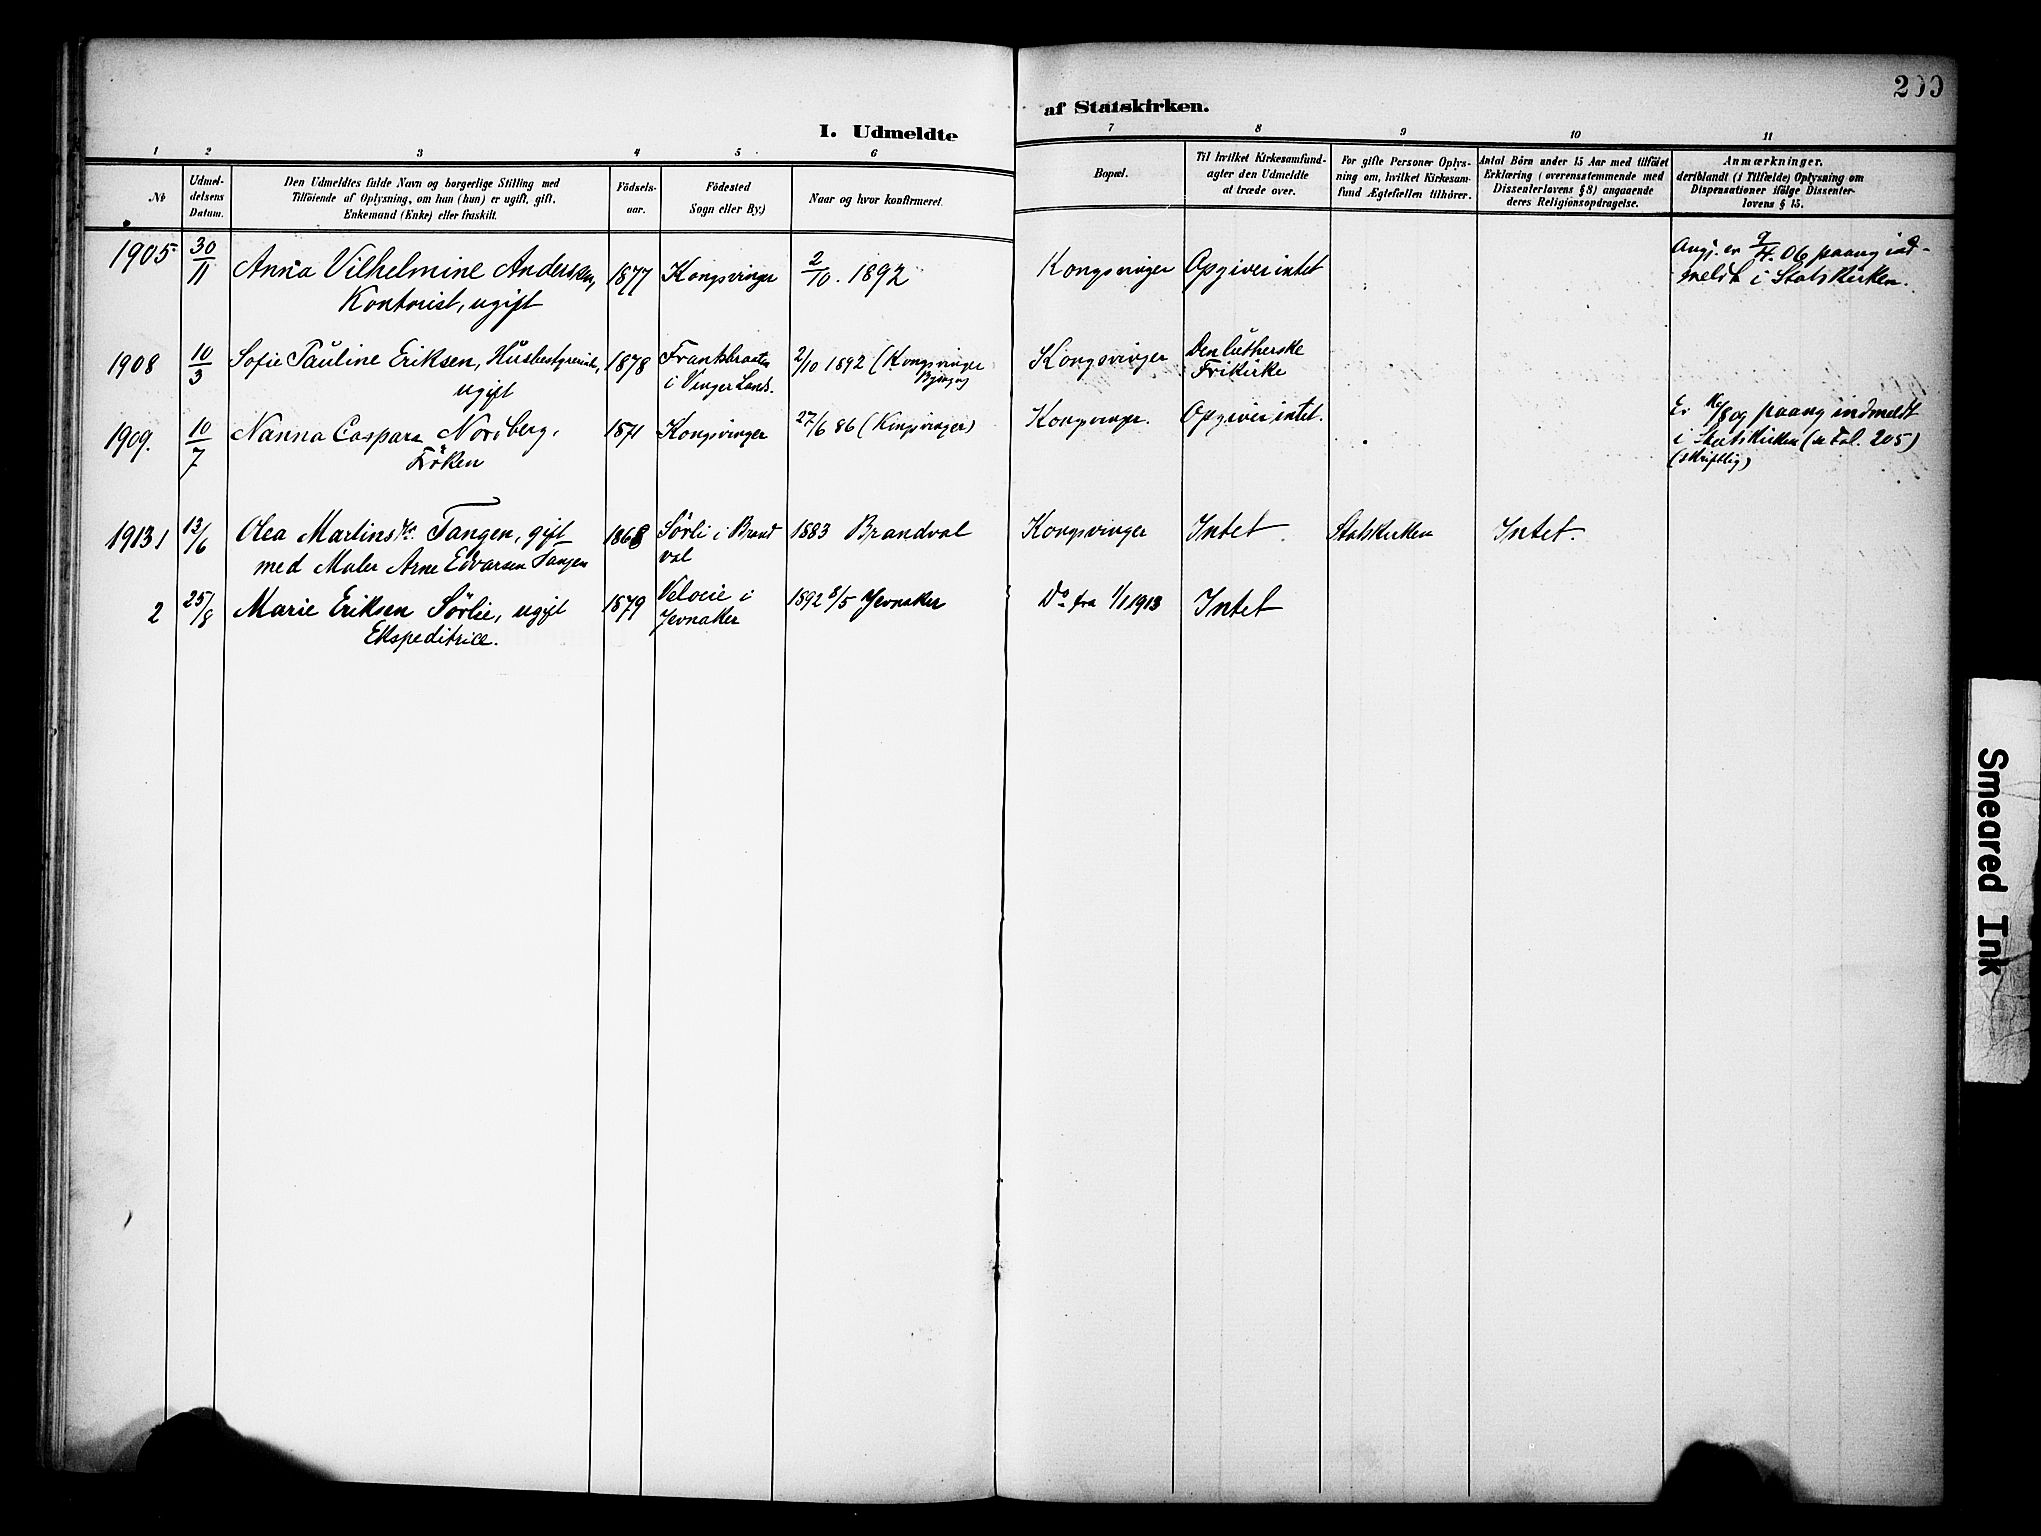 200
I. Udmeldte
af Statskirken.
1 2 3 4 5 6 7 8 9 10 11
№
Udmel-
delsens
Datum.
Den Udmeldtes fulde Navn og borgerlige Stilling med
Tilföiende af Oplysning, om han (hun) er ugift, gift,
Enkemand (Enke) eller fraskilt.
Födsels-
aar.
Födested
Sogn eller By.)
Naar og hvor konfirmeret.
Bopæl.
Til hvilket Kirkesamfund-
agter den Udmeldte
at træde over.
For gifte Personer Oplys-
ning om, hvilket Kirkesam-
fund Ægtefællen tilhörer.
Antal Börn under 15 Aar med tilföiet
Erklæring (overensstemmende med
Dissenterlovens § 8) angaaende
deres Religionsopdragelse.
Anmærkninger.
deriblandt (i Tilfælde) Oplysning om
Dispensationer ifölge Dissenter-
lovens § 15.
1905 30/11 Anna Vilhelmine Andersen, 1877 Kongsvinger 2/10. 1892 Kongsvinger Opgiver intet
Kontorist, ugift
Angj. er 9/4. 06 paany ind-
meldt i Statskirken.
1908 10/3 Sofie Pauline Eriksen, Husbestyrerinde, 1878 2/10 1892 (Kongsvinger Kongsvinger Den lutherske
ugift i Vinger Lands. Frikirke
1909. 10/7 Nanna Caspara Norberg, 1871 Kongsvinger 27/6 86 (Kongsvinger) Kongsvinger. Opgiver intet.
Fröken
Er paany indmeldt
i Statskirken (se Fol. 205)
(skriftlig)
1913 1 13/6 Olea Martins Tangen, gift 1868 Sörli i Brand 1883 Brandval Kongsvinger Intet Statskirken Intet.
med Maler Arne Edvarsen Tangen val
2 25/8 Marie Eriksen Sörlie, ugift 1879 i 1892 8/5 Jevnaker Do fra 1/1 1913 Intet
Ekspeditrice. Jevnaker
Smeared Ink